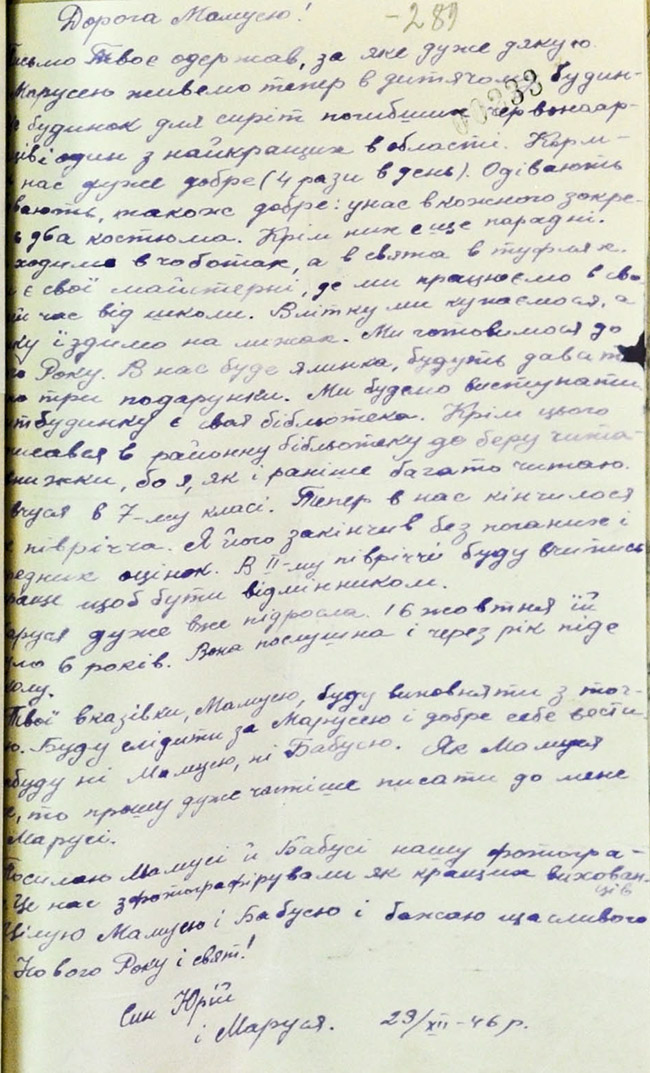 Дорога Мамусю! -289
00233
Письмо Твоє одержав, за яке дуже дякую.
Марусею живемо тепер в дитячому будин-
будинок для сиріт погибших червоноар-
один з найкращих в області. Корм-
нас дуже добре (4 рази в день). Одівають
вають, також добре: у нас в кожного закре-
два костюма. Крім них є ще парадні.
ходимо в чоботях, а в свята в туфлях.
є свої майстерні, де ми працюємо в сво-
час від школи. Влітку ми купаємося, а
ку їздимо на лижах. Ми готовимося до
Року. В нас буде ялинка, будуть давать
по три подарунки. Ми будемо виступати
будинку є своя бібльотека. Крім цього
писався в районну бібльотеку де беру чита-
книжки, бо я, як і раніше багато читаю.
вчуся в 7-му класі. Тепер в нас кінчилося
півріччя. Я його закінчив без поганих і
редних оцінок. В II-му півріччі буду вчитись
краще щоб бути відмінником.
Маруся дуже вже підросла. 16 жовтня їй
було 6 років. Вона послушна і через рік піде
колу.
Твої вказівки, Мамусю, буду виповняти з точ-
ю. Буду слідити за Марусею і добре себе вести.
буду ні Мамусю, ні Бабусю. Як Мамуся
то прошу дуже частіше писати до мене
Марусі.
Посилаю Мамусі й Бабусі нашу фотогра-
Це нас зфотографірували як кращих вихован-
ців
Цілую Мамусю і Бабусю і бажаю щасливого
Нового Року і свят!
Син Юрій
і Маруся. 29/XII-46 р.